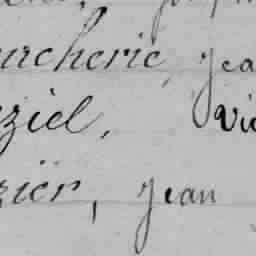 urcherie, Jea
ziel, Vic
zier, Jean